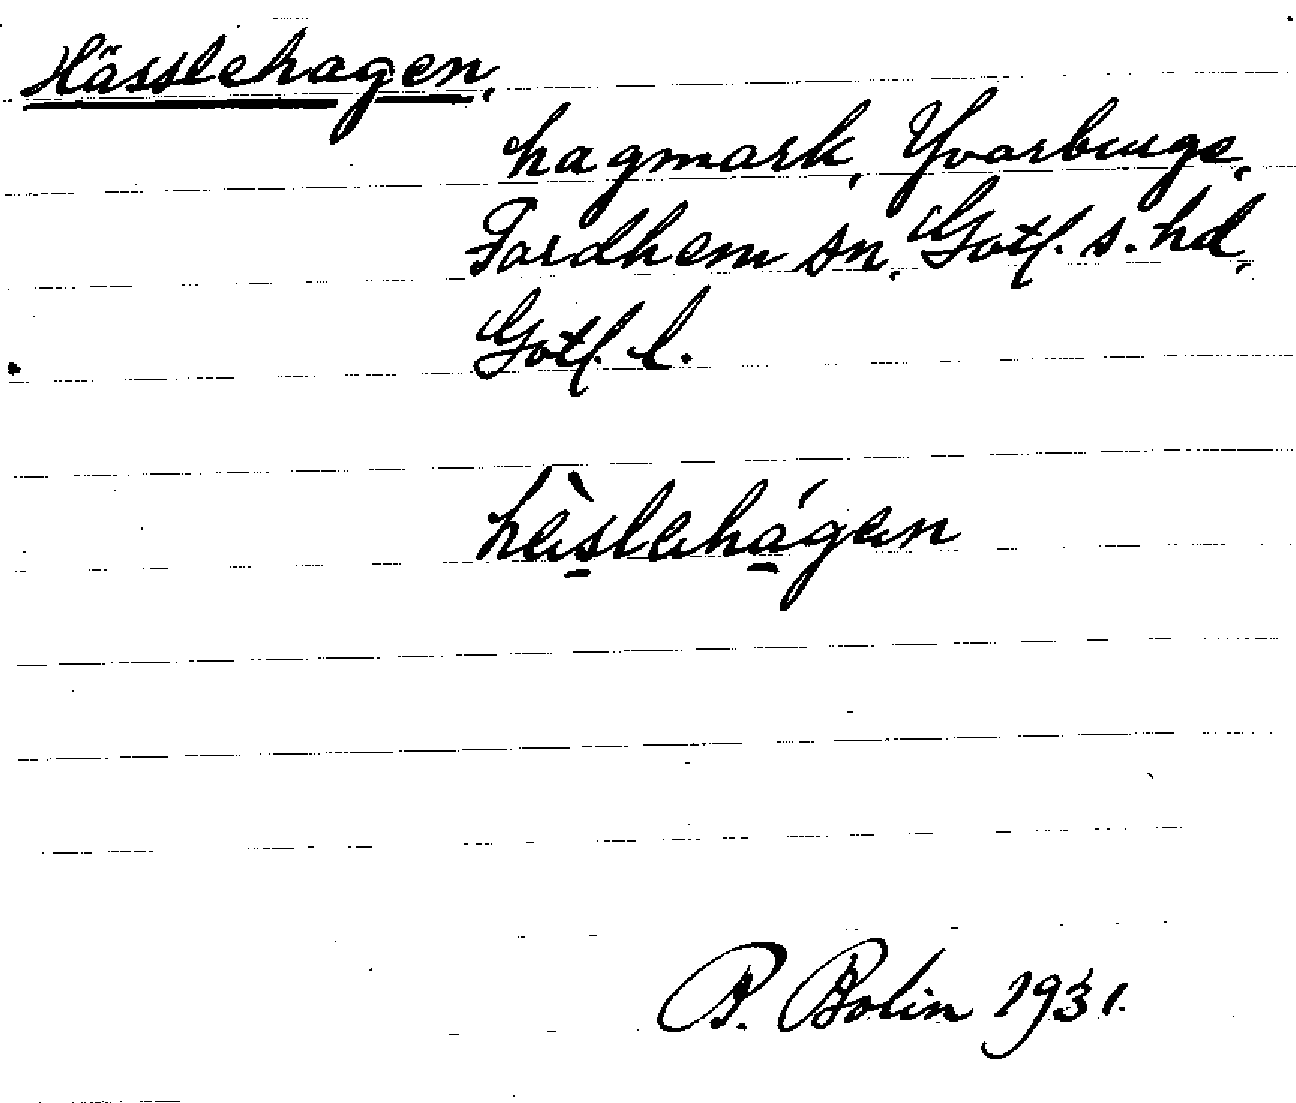 Hässlehagen,
hagmark, Yvarbungs,
Fardhem sn, Gotl. s. hd,
Gotl. l.
hèslehágen
B. Bolin 1931.